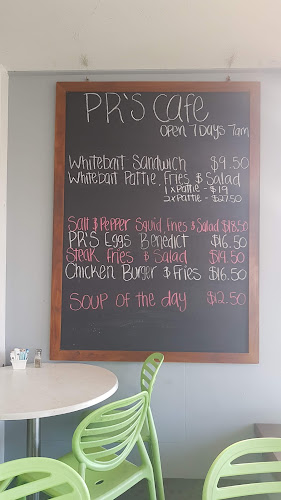 PR'S cafe
Open 7 Days 7am
Whitebait Sandwich $9.50
Whitebait Pattie, Fries & Salad
1 x Pattie - $19
2 x Pattie - $27.50
Salt & Pepper Squid Fries & Salad $18.50
PR'S Eggs Benedict $16.50
Steak Fries & Salad $19.50
Chicken Burger & Fries $16.50
Soup of the day $12.50